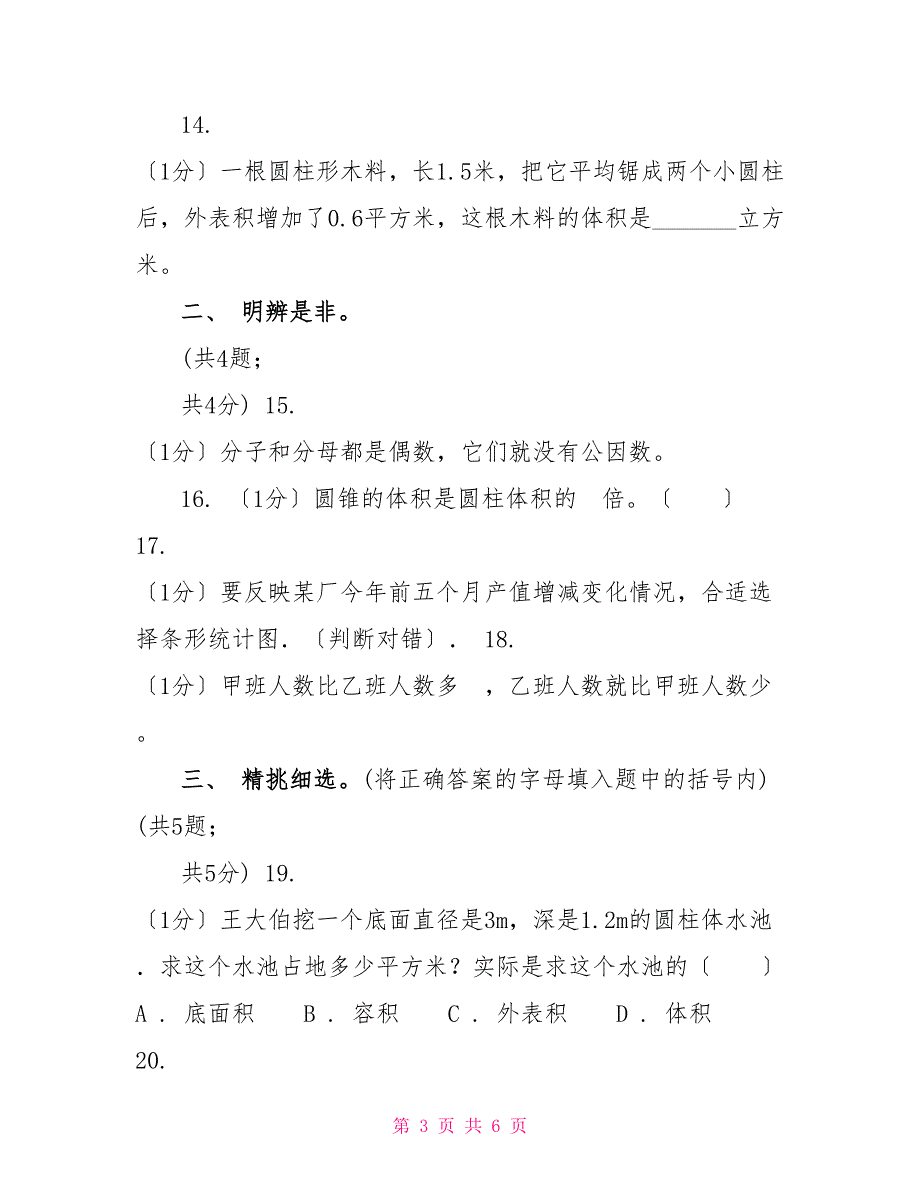 14.
〔1分〕一根圆柱形木料，长1.5米，把它平均锯成两个小圆柱
后，外表积增加了0.6平方米，这根木料的体积是_______立方
米。
二、 明辨是非。
(共4题；
共4分) 15.
〔1分〕分子和分母都是偶数，它们就没有公因数。
16. 〔1分〕圆锥的体积是圆柱体积的　倍。〔　　〕
17.
〔1分〕要反映某厂今年前五个月产值增减变化情况，合适选
择条形统计图．〔判断对错〕． 18.
〔1分〕甲班人数比乙班人数多　，乙班人数就比甲班人数少
。
三、 精挑细选。(将正确答案的字母填入题中的括号内)
(共5题；
共5分) 19.
〔1分〕王大伯挖一个底面直径是3m，深是1.2m的圆柱体水池
．求这个水池占地多少平方米？实际是求这个水池的〔　　〕
A . 底面积　　B . 容积　　C . 外表积　　D . 体积
20.
第 3 页 共 6 页